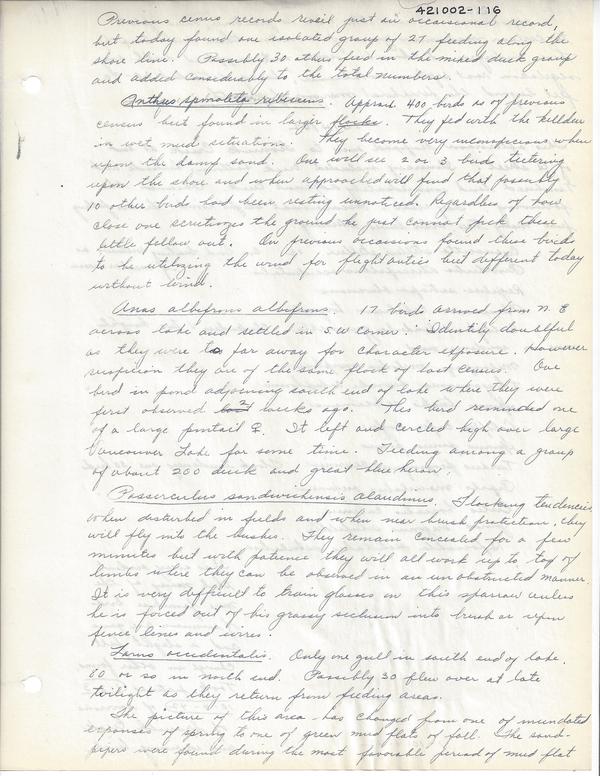 421002-116
Previous census records reveil just an occasional record,
but today found one isolated group of 27 feeding along the
shore line. Possibly 30 others feed in the mixed duck group
and added considerably to the total numbers.
Anthus spinoletta rubescens. Approx. 400 birds as of previous
census but found in larger flocks. They fed with the killdeer
in wet mud situations. They become very inconspicious when
upon the damp sand. One will see 2 or 3 birds teetering
upon the shore and when approached will find that possibly
10 other birds had been resting unnoticed. Regardless of how
close one scrutinizes the ground he just cannot pick these
little fellow out. On previous occassions found these birds
to be utilizing the wind for flight antics but different today
without wind.
Anas albifrons albifrons. 17 birds arrived from N.E
across lake and settled in S.W corner. Identity doubtful
as they were too far away for character exposure. However
suspicion they are of the same flock of last census. One
bird in pond adjoining south end of lake where they were
first observed 2 weeks ago. This bird reminded one
of a large pintail ♀. It left and circled high over large
Vancouver Lake for some time. Feeding among a group
of about 200 duck and great blue heron.
Passerculus sandwichensis alaudinus. Flocking tendencies
when disturbed in fields and when near brush protection, they
will fly into the bushes. They remain concealed for a few
minutes but with patience they will all work up to top of
limbs where they can be observed in an unobstructed manner.
It is very difficult to train glasses on this sparrow unless
he is forced out of his grassy seclusion into brush or upon
fence lines and wires.
Larus occidentalis. Only one gull in south end of lake.
60 or so in north end. Possibly 30 flew over at late
twilight as they return from feeding areas.
The picture of this area has changed from one of inundated
expanses of spring to one of green mud flats of fall. The sand-
pipers were found during the most favorable period of mud flat